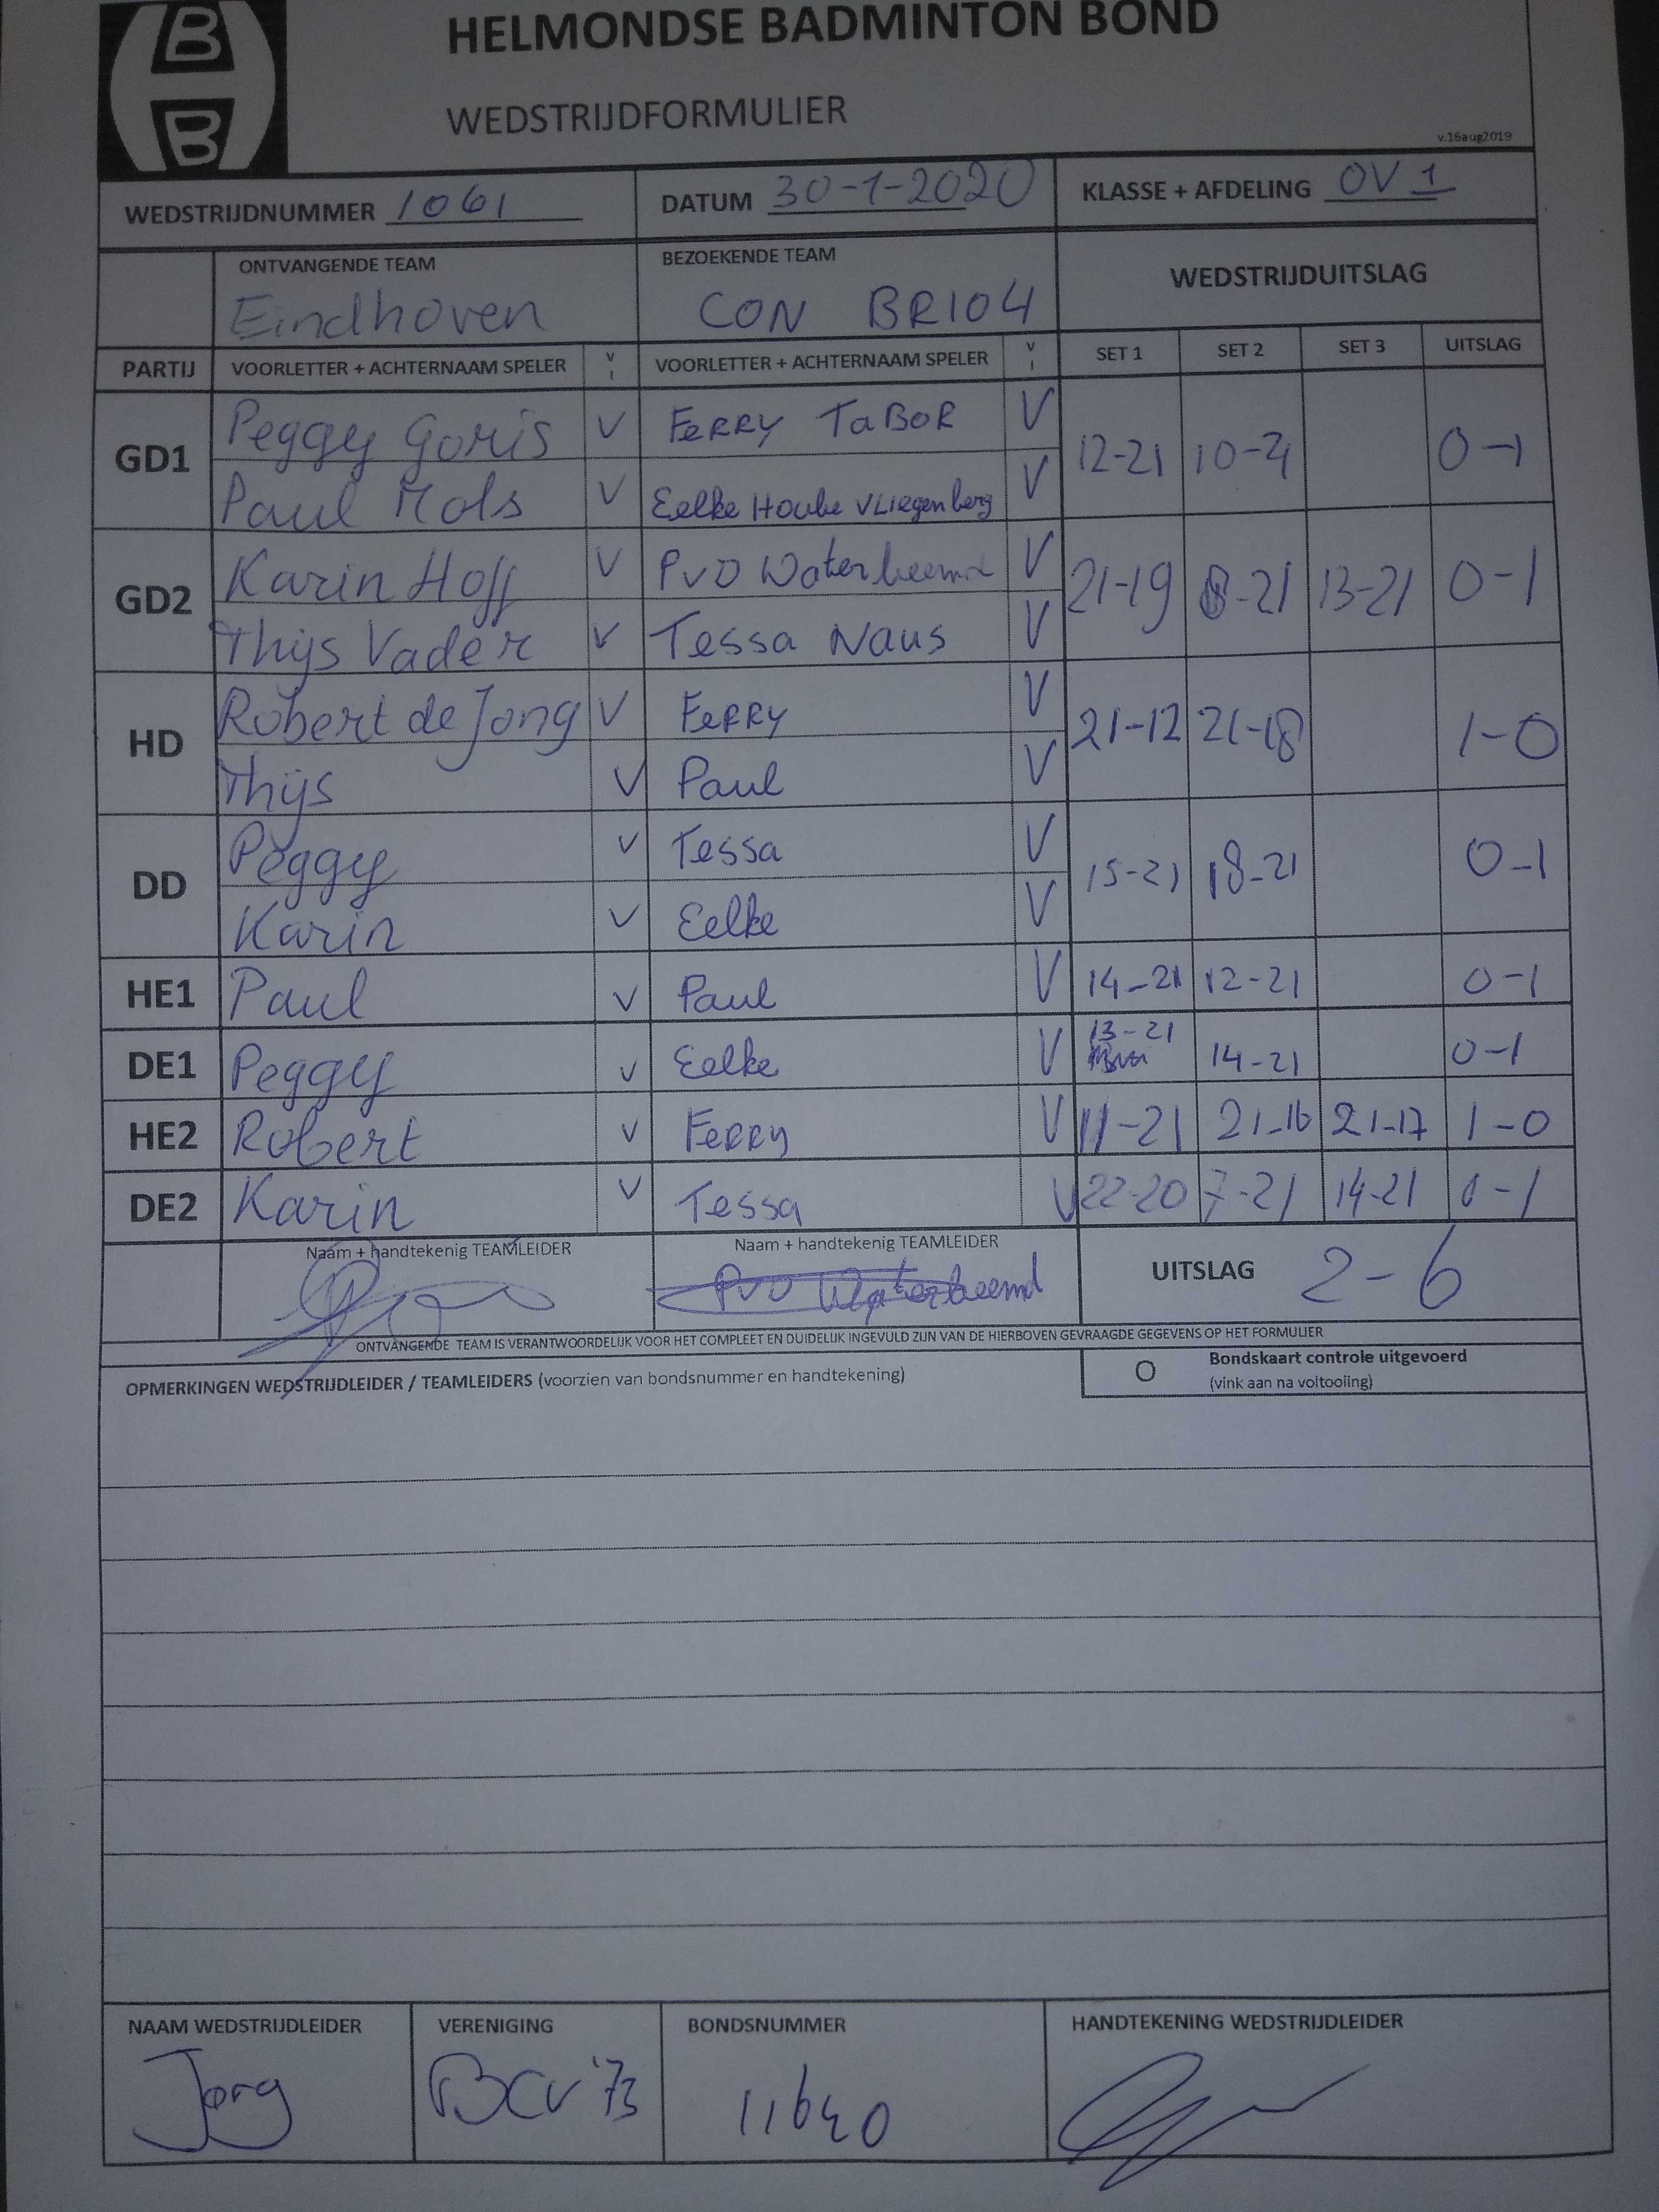 B
B
HELMONDSE BADMINTON BOND
WEDSTRIJDFORMULIER
v.16aug2019
WEDSTRIJDNUMMER 1061 DATUM 30-1-2020 KLASSE + AFDELING OV 1
ONTVANGENDE TEAM BEZOEKENDE TEAM WEDSTRIJDUITSLAG
Eindhoven CON BRIO4
PARTIJ VOORLETTER + ACHTERNAAM SPELER V I VOORLETTER + ACHTERNAAM SPELER V I SET 1 SET 2 SET 3 UITSLAG
GD1 Peggy Goris V FERRY TABOR V 12-21 10-21 0-1
Paul Mols V Eelke Houbevliegenberg V
GD2 Karin Hoff V PvD Waterbeemd V 21-19 8-21 13-21 0-1
Thijs Vader V Tessa Naus V
HD Robert de Jong V FERRY V 21-12 21-18 1-0
Thijs V Paul V
DD Peggy V Tessa V 15-21 18-21 0-1
Karin V Eelke V
HE1 Paul V Paul V 14-21 12-21 0-1
DE1 Peggy V Eelke V 13-21 14-21 0-1
HE2 Robert V Ferry V 11-21 21-16 21-17 1-0
DE2 Karin V Tessa V 22-20 7-21 14-21 0-1
Naam + handtekenig TEAMLEIDER Naam + handtekenig TEAMLEIDER UITSLAG 2-6
PvD Waterbeemd
ONTVANGENDE TEAM IS VERANTWOORDELIJK VOOR HET COMPLEET EN DUIDELIJK INGEVULD ZIJN VAN DE HIERBOVEN GEVRAAGDE GEGEVENS OP HET FORMULIER
OPMERKINGEN WEDSTRIJDLEIDER / TEAMLEIDERS (voorzien van bondsnummer en handtekening) O Bondskaart controle uitgevoerd
(vink aan na voltooiing)
NAAM WEDSTRIJDLEIDER VERENIGING BONDSNUMMER HANDTEKENING WEDSTRIJDLEIDER
Jorg BCV '73 11640